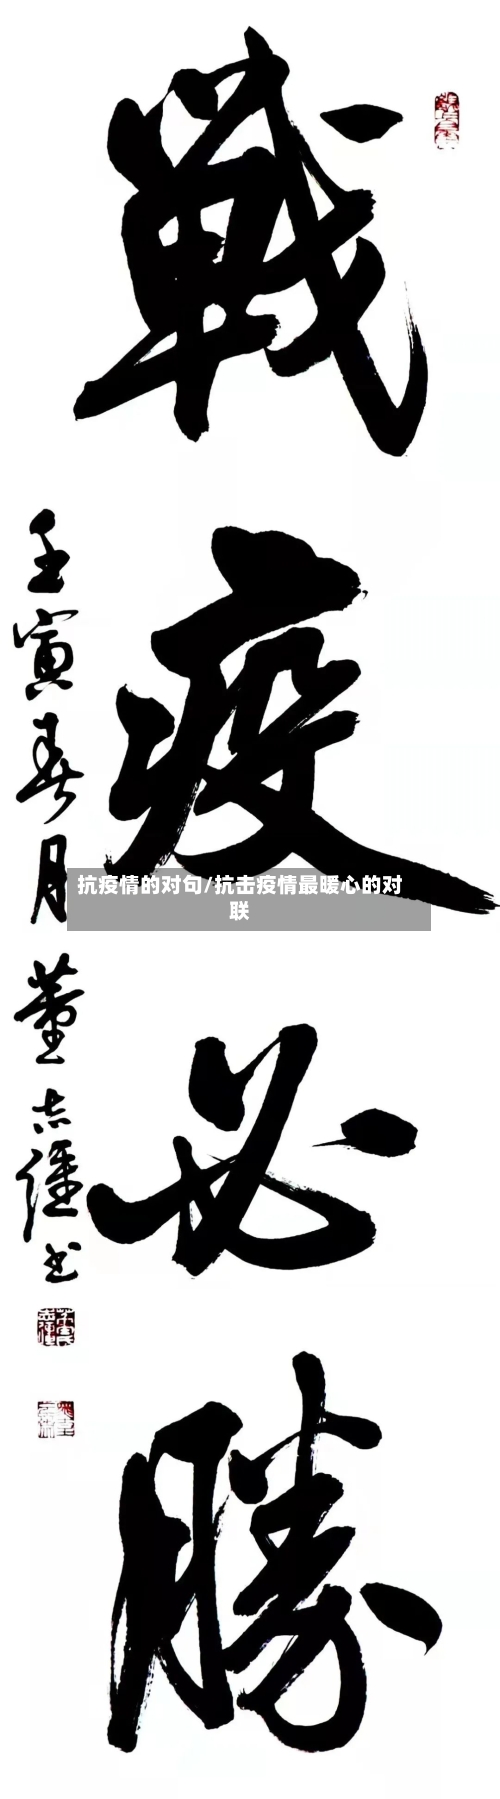 戰疫必勝
壬寅春月董志疆书
抗疫情的对句/抗击疫情最暖心的对
联